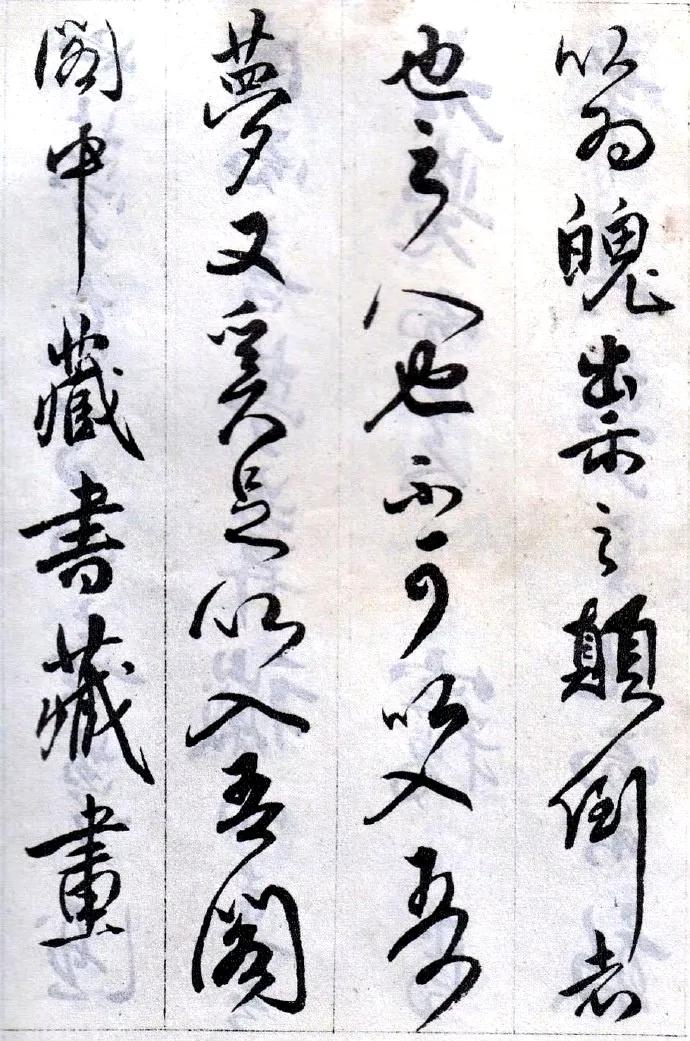 以為魄出祟之顛倒者
也之人也不可以入吾
夢又奚足以入吾閣
閣中藏書藏畫